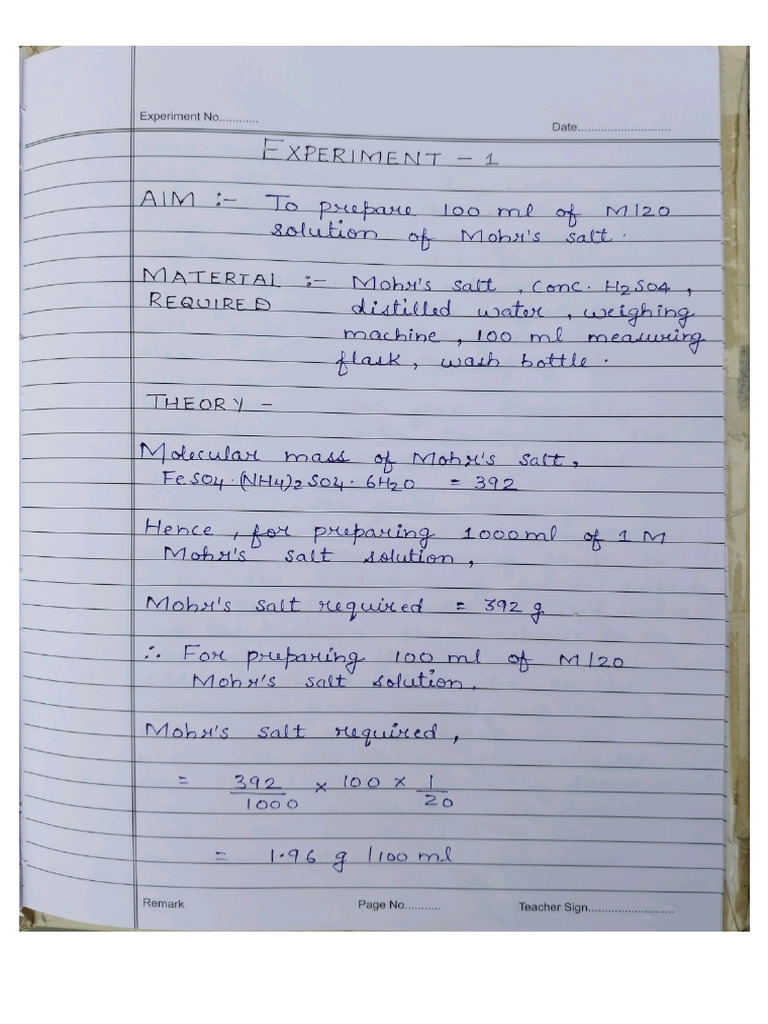 Experiment No............
Date............................
EXPERIMENT - 1
AIM :- To prepare 100 ml of M/20
solution of Mohr's salt.
MATERIAL :- Mohr's salt, Conc. H2SO4,
REQUIRED distilled water, weighing
machine, 100 ml measuring
flask, wash bottle.
THEORY -
Molecular mass of Mohr's salt,
FeSO4.(NH4)2SO4.6H2O = 392
Hence, for preparing 1000ml of 1 M
Mohr's salt solution,
Mohr's salt required = 392 g
∴ For preparing 100 ml of M/20
Mohr's salt solution.
Mohr's salt required,
= 392/1000 × 100 × 1/20
= 1.96 g /100 ml
Remark Page No........... Teacher Sign..........................